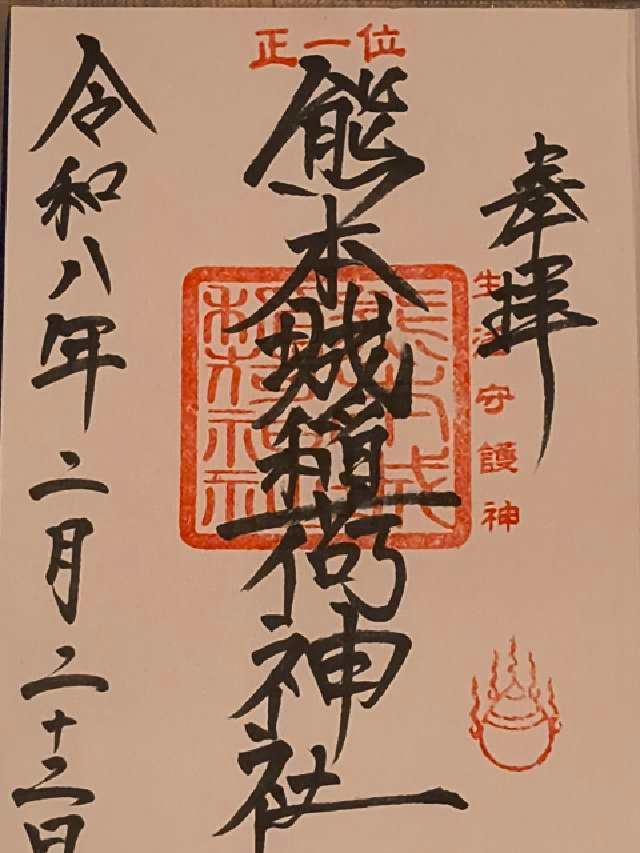 奉拝
生活守護神
正一位
熊本城稲荷神社
熊本城
稲荷神社
令和八年二月二十三日